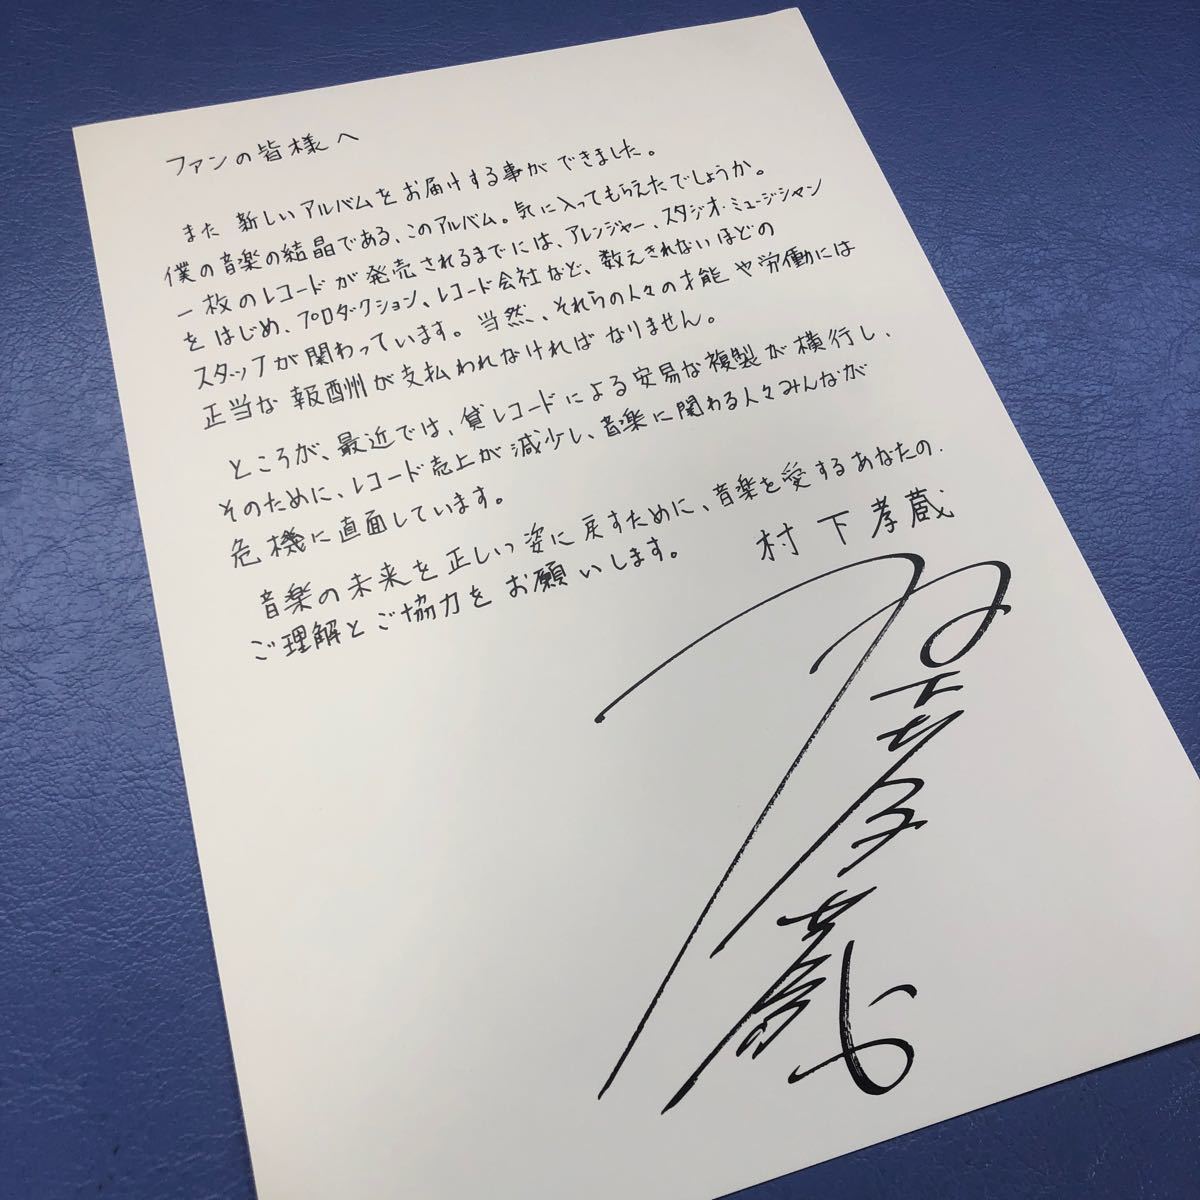 ファンの皆様へ
また新しいアルバムをお届けする事ができました。
僕の音楽の結晶である、このアルバム。気に入ってもらえたでしょうか。
一枚のレコードが発売されるまでには、アレンジャー、スタジオ・ミュージシャン
をはじめ、プロダクション、レコード会社など、数えきれないほどの
スタッフが関わっています。当然、それらの人々の才能や労働には
正当な報酬が支払われなければなりません。
ところが、最近では、貸レコードによる安易な複製が横行し、
そのために、レコード売上が減少し、音楽に関わる人々みんなが
危機に直面しています。
音楽の未来を正しい姿に戻すために、音楽を愛するあなたの、
ご理解とご協力をお願いします。
村下孝蔵
村下孝蔵